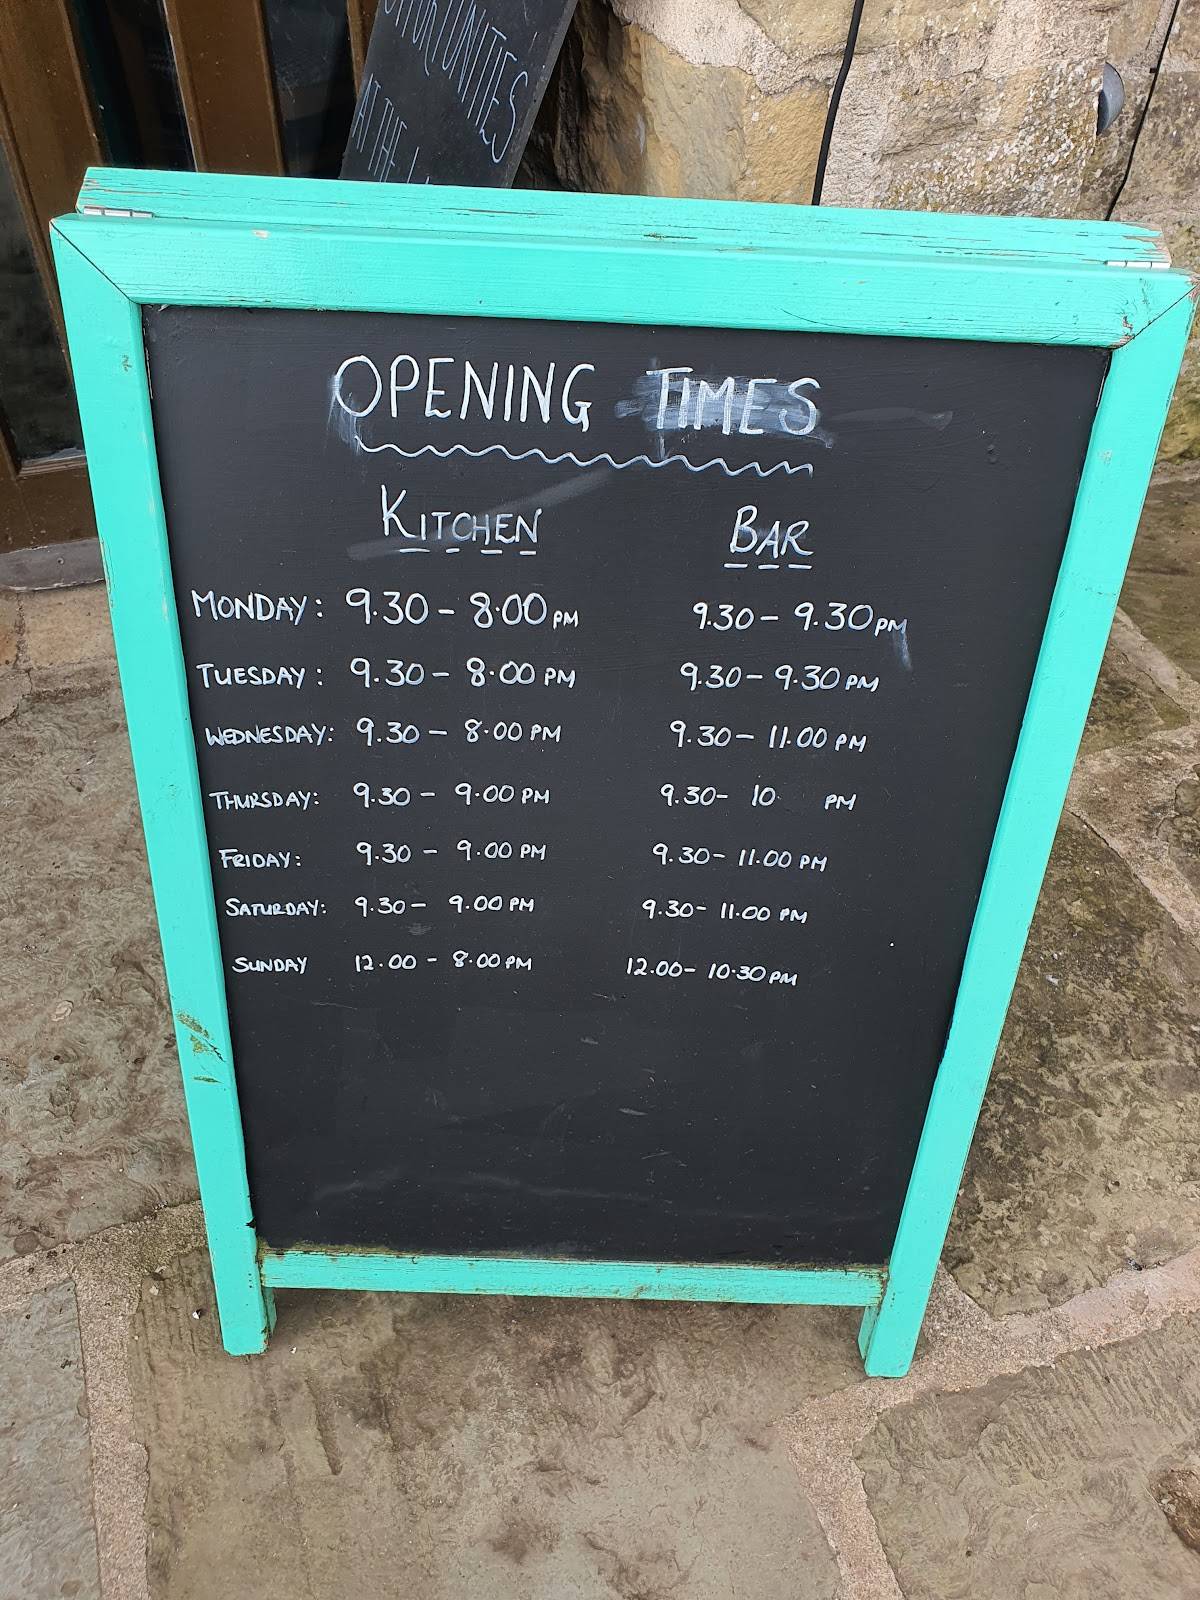 OPPORTUNITIES
AT THE
OPENING TIMES
KITCHEN BAR
MONDAY: 9.30 - 8.00 PM 9.30 - 9.30 PM
TUESDAY: 9.30 - 8.00 PM 9.30 - 9.30 PM
WEDNESDAY: 9.30 - 8.00 PM 9.30 - 11.00 PM
THURSDAY: 9.30 - 9.00 PM 9.30 - 10 PM
FRIDAY: 9.30 - 9.00 PM 9.30 - 11.00 PM
SATURDAY: 9.30 - 9.00 PM 9.30 - 11.00 PM
SUNDAY 12.00 - 8.00 PM 12.00 - 10.30 PM